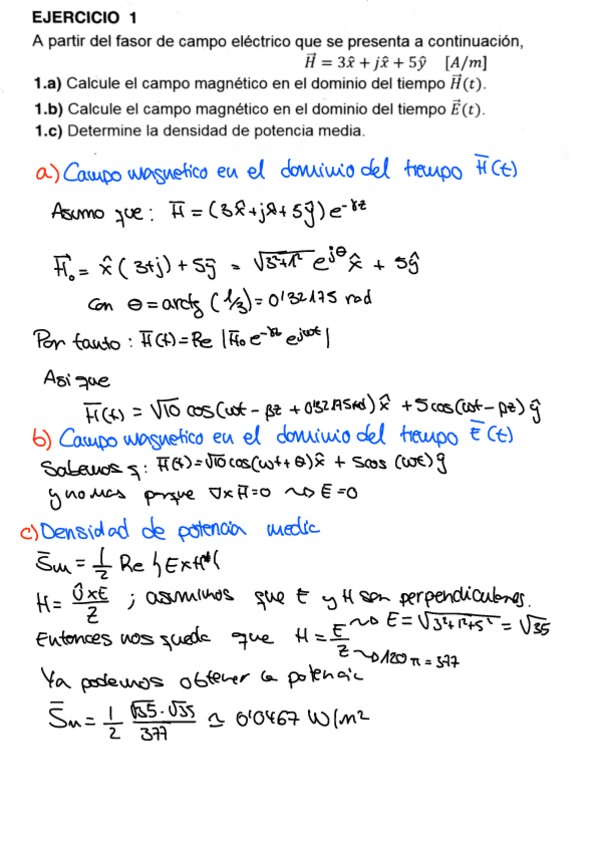 EJERCICIO 1
A partir del fasor de campo eléctrico que se presenta a continuación,
H⃗ = 3x̂ + jx̂ + 5ŷ [A/m]
1.a) Calcule el campo magnético en el dominio del tiempo H⃗(t).
1.b) Calcule el campo magnético en el dominio del tiempo E⃗(t).
1.c) Determine la densidad de potencia media.
a) Campo magnetico en el dominio del tiempo H̄(t)
Asumo que: H̄ = (3x̂+jx̂+5ŷ) e^-γz
H̄₀ = x̂(3+j) + 5ŷ = √3²+1² e^jθ x̂ + 5ŷ
con θ = arctg (1/3) = 0'32175 rad
Por tanto: H̄(t) = Re |H̄₀ e^-γz e^jωt|
Asi que
H̄(t) = √10 cos(ωt - βz + 0'32175rad) x̂ + 5cos(ωt - βz) ŷ
b) Campo magnetico en el dominio del tiempo Ē(t)
Sabemos q: H̄(t) = √10 cos(ωt + θ) x̂ + 5cos (ωt) ŷ
y no mas porque ∇xH̄=0 ⇝ Ē=0
c) Densidad de potencia media
S̄m = 1/2 Re {ExH*{
H = ÛxE/Z ; asumimos que E y H son perpendiculares.
Entonces nos queda que H = E/Z ⇝ E = √3²+1²+5² = √35
⇝ 120π = 377
Ya podemos obtener la potencia
S̄m = 1/2 √35·√35/377 ≃ 0'0467 W/m²